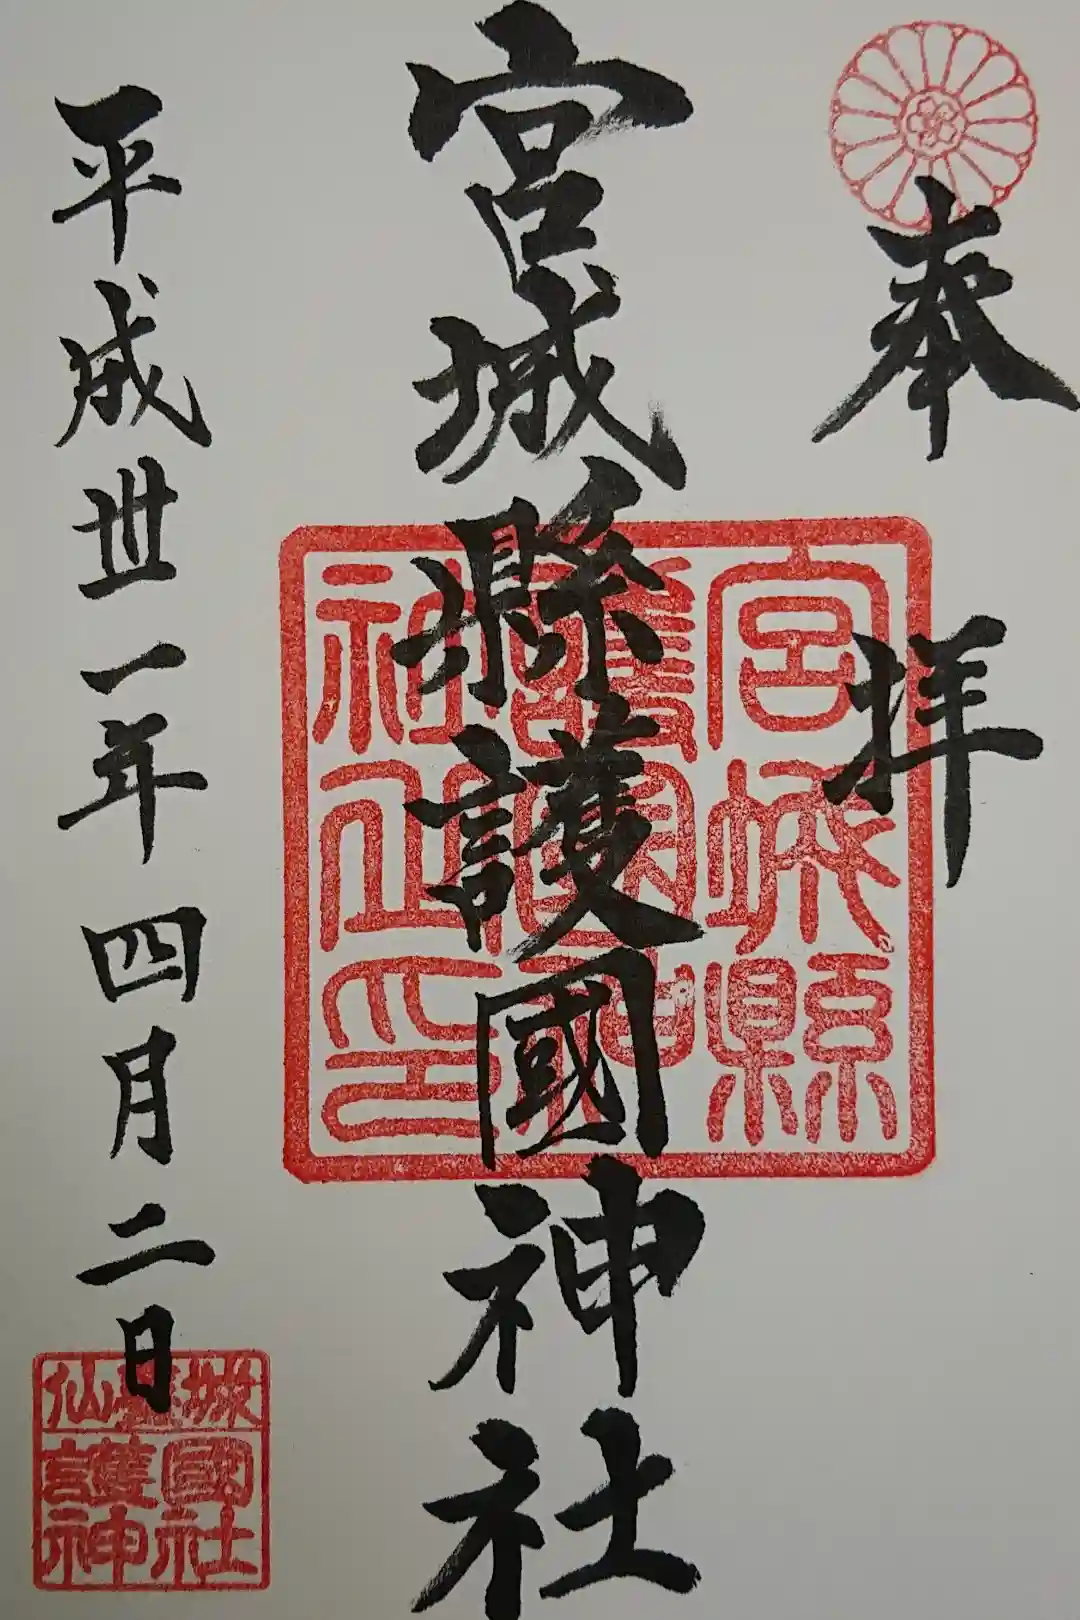 奉拝
宮城縣護國神社
平成卅一年四月二日
宮城縣
護國神
社之印
仙臺城
護國
神社